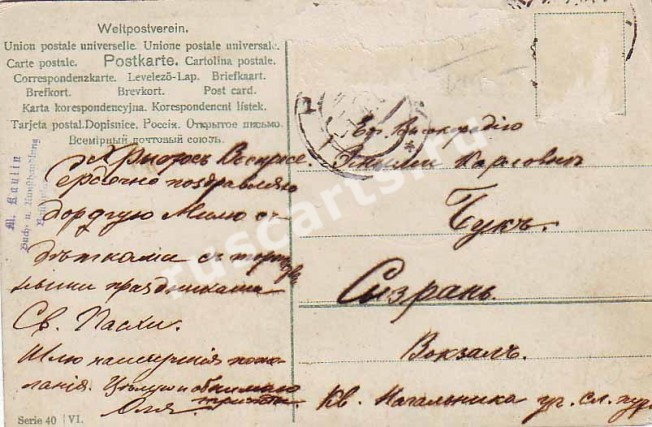 Weltpostverein.
Union postale universelle. Unione postale universale.
Carte postale. Postkarte. Cartolina postale.
Correspondenzkarte. Levelező-Lap. Briefkaart.
Brefkort. Brevkort. Post card.
Karta korespondencyjna. Korespondencni lístek.
Tarjeta postal. Dopisnice. Россія. Открытое письмо.
Всемірный почтовый союзъ.
M. Kaulin
Buch- u. Kunsthandlung
Христосъ Воскресе.
Сердечно поздравляю
дорогую Милю съ
дѣтками съ
праздниками
Св. Пасхи.
Шлю наилучшія поже-
ланія. Цѣлую и обнимаю
Оля
Ев. Высокородію
Эмиліи Карловнѣ
Букъ.
Сызрань.
Вокзалъ.
Кв. Начальника уч. сл.
Serie 40 VI.
ruscarts.ru